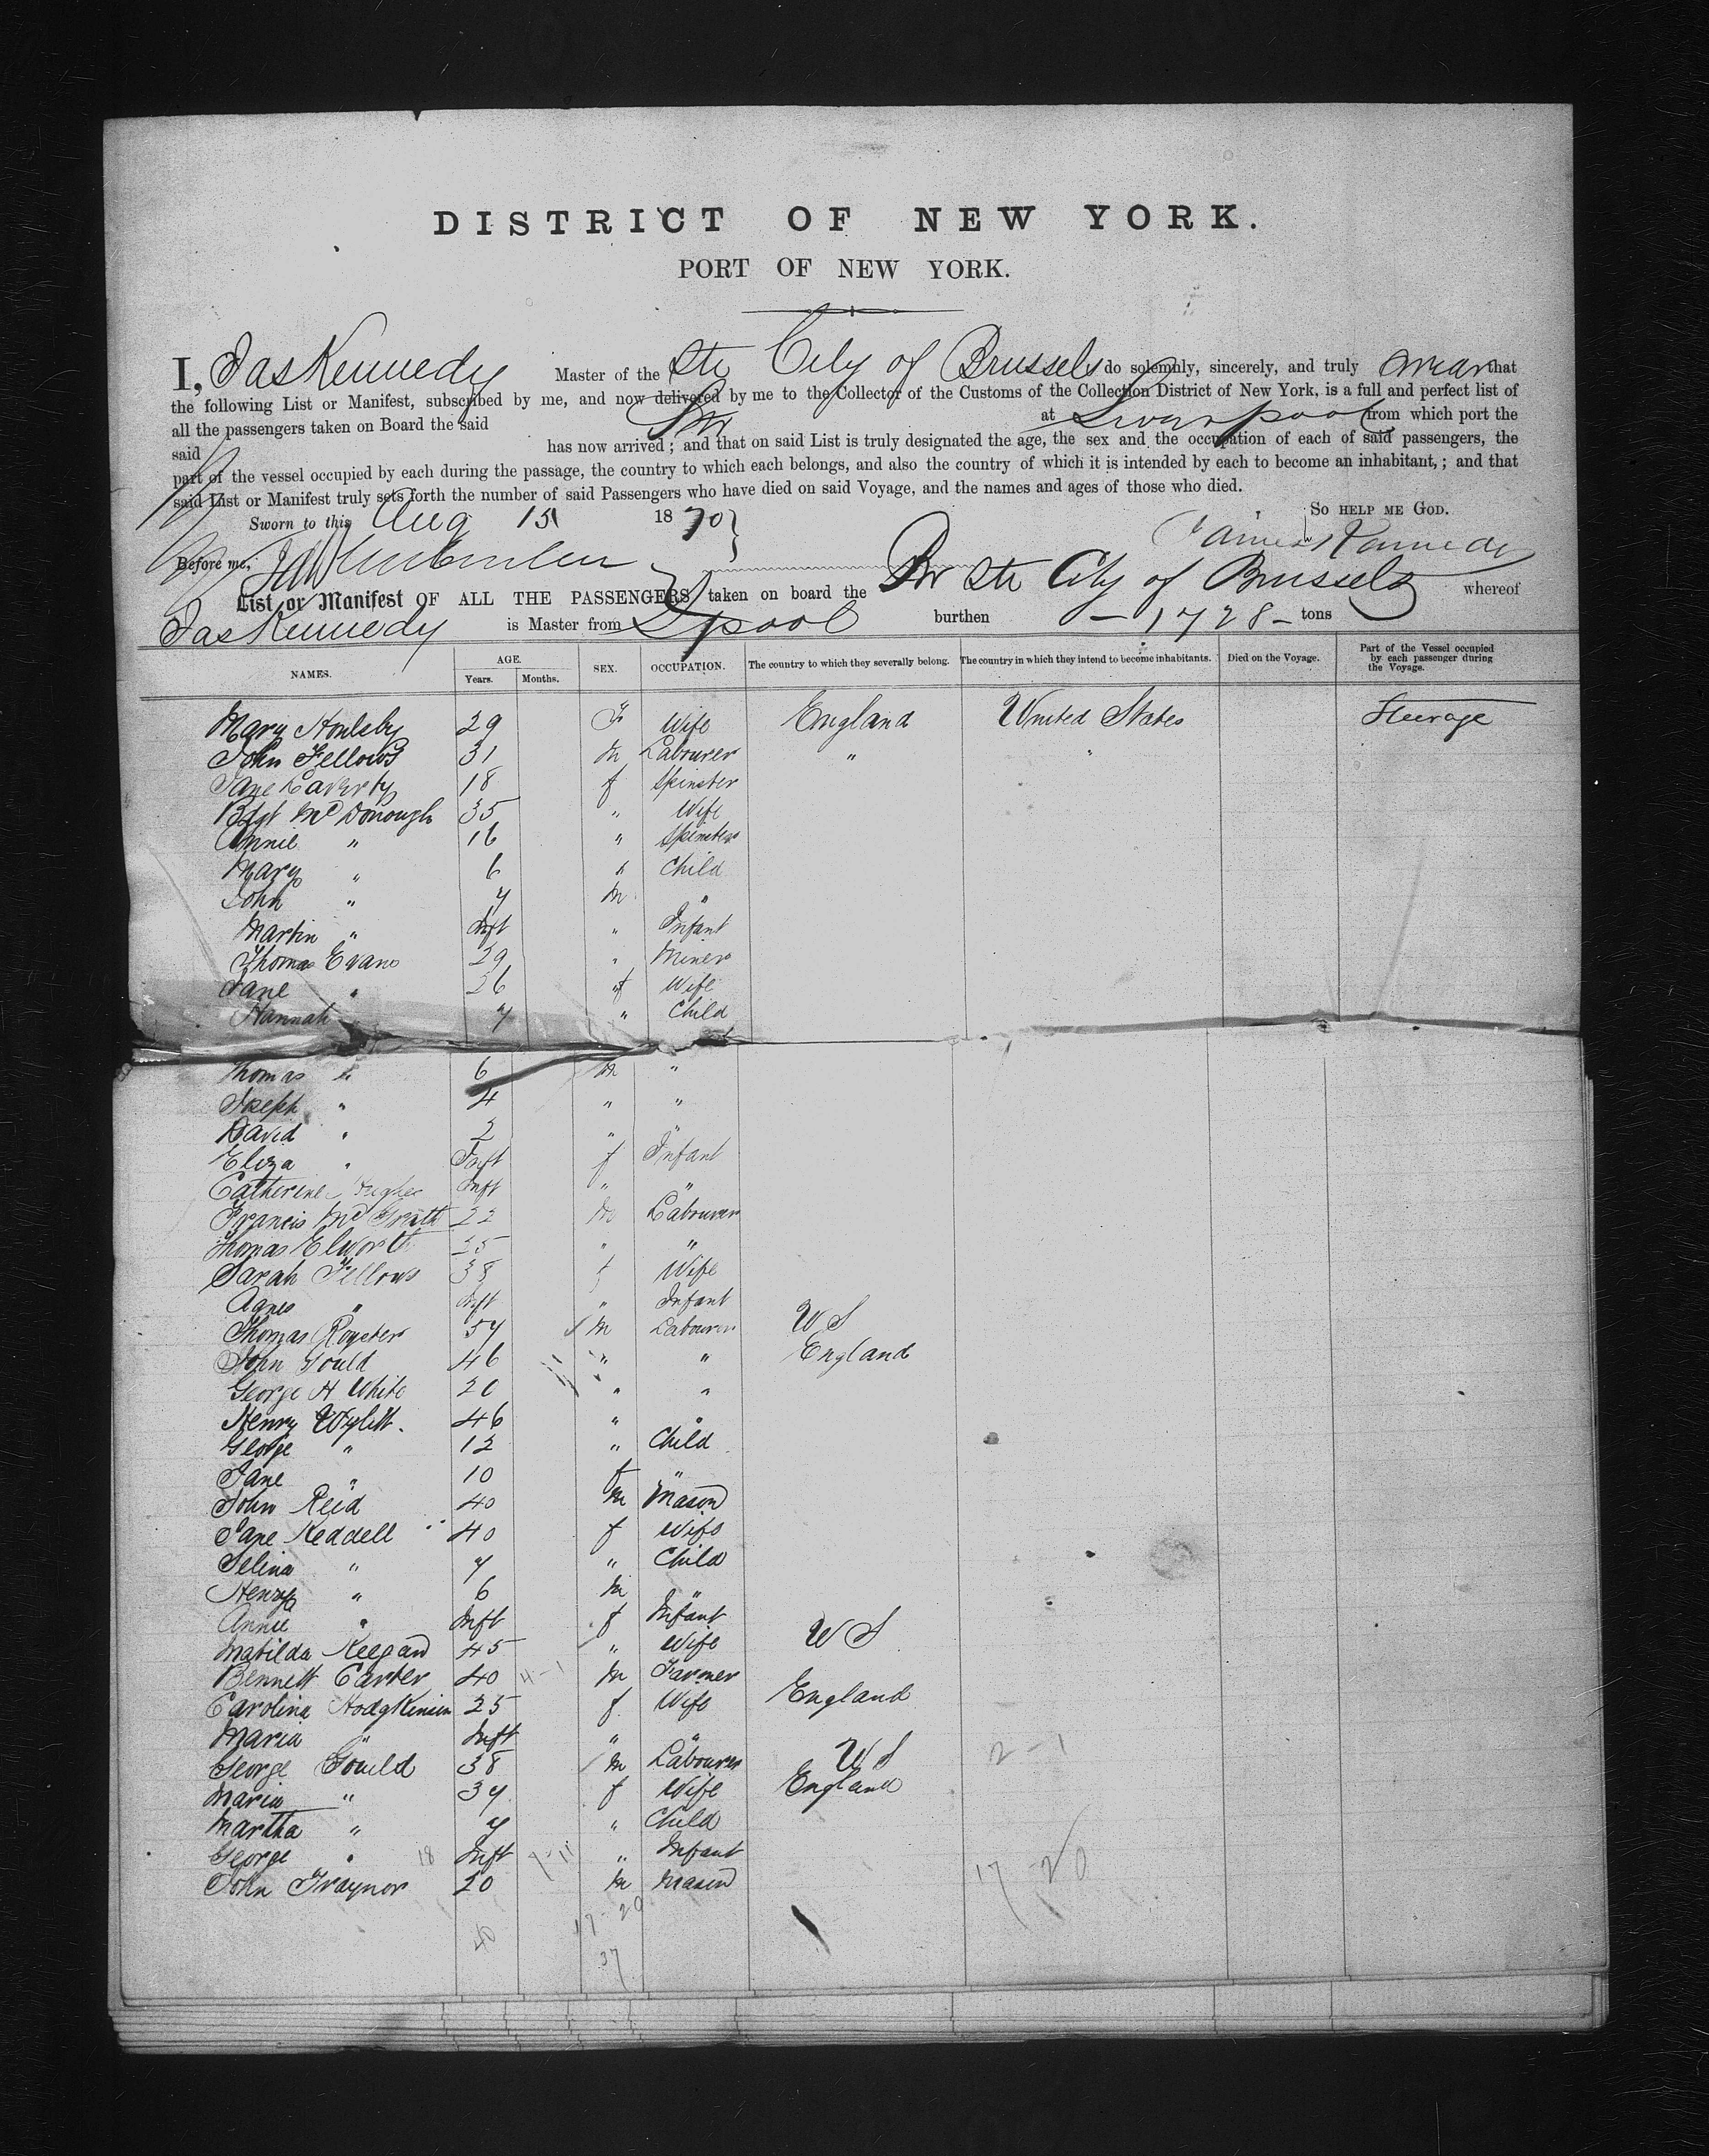 DISTRICT OF NEW YORK.
PORT OF NEW YORK.
I, Jas Kennedy Master of the Str City of Brussels do solemnly, sincerely, and truly swear that
the following List or Manifest, subscribed by me, and now delivered by me to the Collector of the Customs of the Collection District of New York, is a full and perfect list of
all the passengers taken on Board the said Str at Liverpool from which port the
said has now arrived; and that on said List is truly designated the age, the sex and the occupation of each of said passengers, the
part of the vessel occupied by each during the passage, the country to which each belongs, and also the country of which it is intended by each to become an inhabitant,; and that
said List or Manifest truly sets forth the number of said Passengers who have died on said Voyage, and the names and ages of those who died.
Sworn to this Aug 15 1870 } SO HELP ME GOD.
Before me, James Kennedy
List or Manifest OF ALL THE PASSENGERS taken on board the Br Str City of Brussels whereof
Jas Kennedy is Master from Lpool burthen – 1728 – tons
NAMES. AGE. Years. Months. SEX. OCCUPATION. The country to which they severally belong. The country in which they intend to become inhabitants. Died on the Voyage. Part of the Vessel occupied by each passenger during the Voyage.
Mary 29 F Wife England United States Steerage
John Fellows 31 M Labourer " "
Jane Laverty 18 f Spinster
Bdgt McDonough 35 " Wife
Annie " 16 " Spinster
Mary " 6 " Child
John " 7 M "
Martin " Inft " Infant
Thomas Evans 29 " Miner
Jane " 26 f Wife
Hannah 7 " Child
Thomas " 6 M "
Joseph " 4 " "
David " 2 "
Eliza " Inft f Infant
Catherine Hughes Inft " "
Francis McGrath 22 M Labourer
Thomas Elworth 25 " "
Sarah Fellows 38 f Wife
Agnes " Inft " Infant
Thomas Royster 57 M Labourer U S
John Gould 46 " " England
George H White 20 " "
Henry Wylett. 46 " "
George " 12 " Child
Jane " 10 f "
John Reid 40 M Mason
Jane Keddell 40 f Wife
Selina " 7 " Child
Henry " 6 M "
Annie " Inft f Infant
Matilda Keegan 45 " Wife U S
Bennett Carter 40 4-1 M Farmer
Carolina Hodgkinson 25 f Wife England
Maria " Inft " "
George Gould 38 M Labourer U S 2-1
Maria " 37 f Wife England
Martha " 7 " Child
George " 18 Inft 7-11 " Infant
John Traynor 20 M Mason 17-20
40 17-20
37